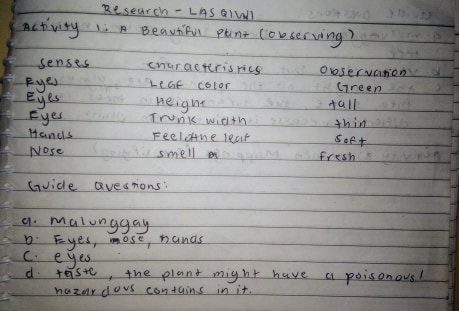 Research - LAS Q1W1
Activity 1. A Beautiful plant (observing)
senses characteristics Observation
Eyes Leaf color Green
Eyes Height tall
Eyes Trunk width thin
Hands Feel of the leaf Soft
Nose smell Fresh
Guide Questions:
a. malunggay
b. Eyes, nose, hands
c. eyes
d. taste, the plant might have a poisonous/
hazardous contains in it.